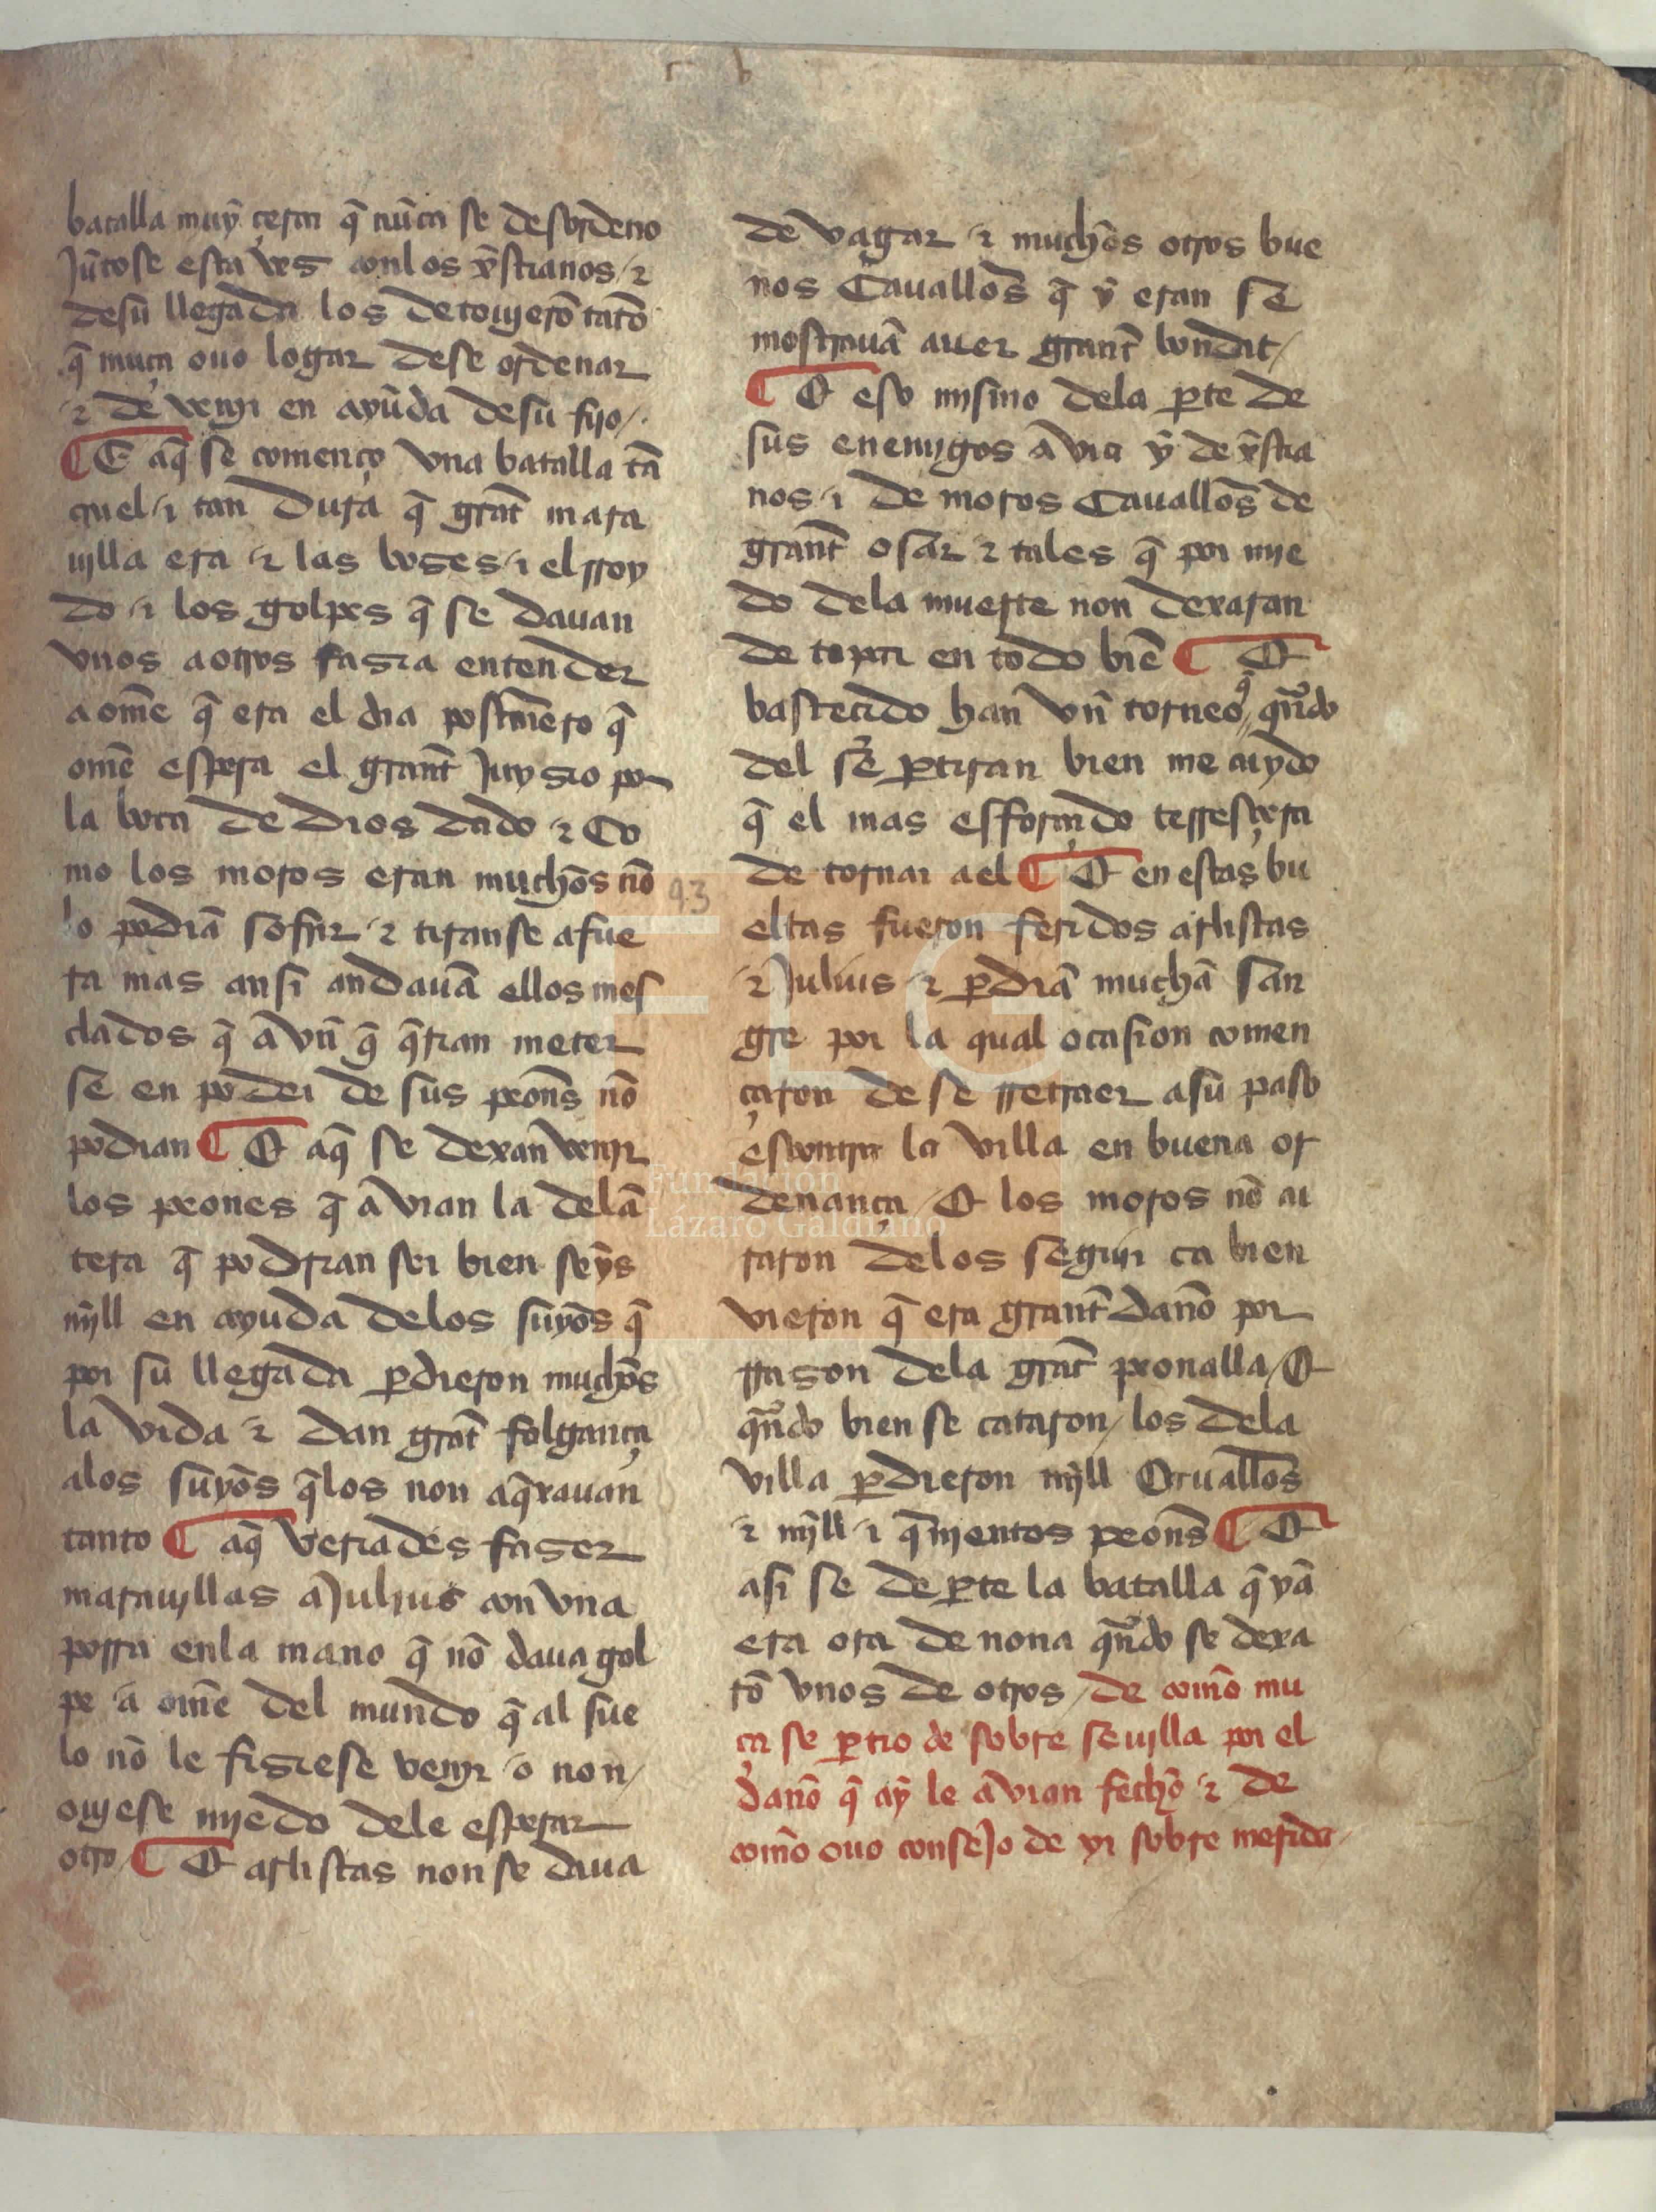 batalla muy çerca q̃ nũca se desordeno
Jũtose esta ves con los xp̃stianos /⁊
de su llegada los detouierõ tãto
q̃ muça ouo logar dese ordenar
⁊ de venir en ayuda de su fijo /.
¶ E aq̃ se començo vna batalla tã
cruel ⁊ tan dura q̃ grãt mara
uilla era ⁊ las boses ⁊ el rroy
do ⁊ los golpes q̃ se dauan
vnos a otros fasia entender
a om̃e q̃ era el dia postrimero q̃
om̃e espera el grant̃ Juysio por
la boca de dios dado ⁊ Co
mo los moros eran muchos nõ
lo podiã sofrir ⁊ tiranse afue
ra mas ansi andauã ellos mes
clados q̃ a vñ q̃ q̃rian meter
se en poder de sus peons̃ nõ
podian ¶ E aq̃ se dexan venir
los peones q̃ a vian la delã
tera q̃ podrian ser bien seys
mill en ayuda de los suyos q̃
por su llegada p̱dieron muchos
la vida ⁊ dan grãt folgança
alos suyos q̃ los non aq̃xauan
tanto ¶ aq̃ veriades faser
marauillas a Julius con vna
porra en la mano q̃ nõ daua gol
pe a om̃e del mundo q̃ al sue
lo nõ le fisiese venir o non /
ouiese miedo dele esperar
otro / ¶ E arlistas non se daua
93
de vagar ⁊ muchos otros bue
nos Cauallos̃ q̃ y eran se
mostrauã auer grant̃ bondat /
¶ E eso mismo dela p̱te de
sus enemigos a via y de xp̃stia
nos ⁊ de moros Cauallos̃ de
grant̃ osar ⁊ tales q̃ por mie
do dela muerte non dexaran
de topar en todo biẽ ¶ E
bastecido han vñ torneo q̃ qñdo
del se p̱tiran bien me cuydo
q̃ el mas efforçado terresçera
de tornar a el ¶ E en estas bu
eltas fueron feridos arlistas
⁊ Julius ⁊ p̱diã muchã san
gre por la qual ocasion comen
çaron de se rretraer a su paso
escontra la villa en buena or
denança / E los moros nõ cu
raron delos seguir ca bien
vieron q̃ era grant̃ daño por
rrason dela grãt peonalla / E
qñdo bien se cataron / los dela
villa p̱dieron mill Cauallos̃
⁊ mill ⁊ q̃nientos peons̃ ¶ E
asi se dep̱te la batalla q̃ yã
era ora de nona qñdo se dexa
rõ vnos de otros / de como mu
ça se p̱tio de sobre seuilla por el
daño q̃ ay le a vian fecho ⁊ de
como ouo consejo de yr sobre merida
Fundación
Lázaro Galdiano
FLG